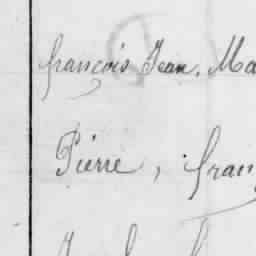 françois Jean. Ma
Pierre, fran